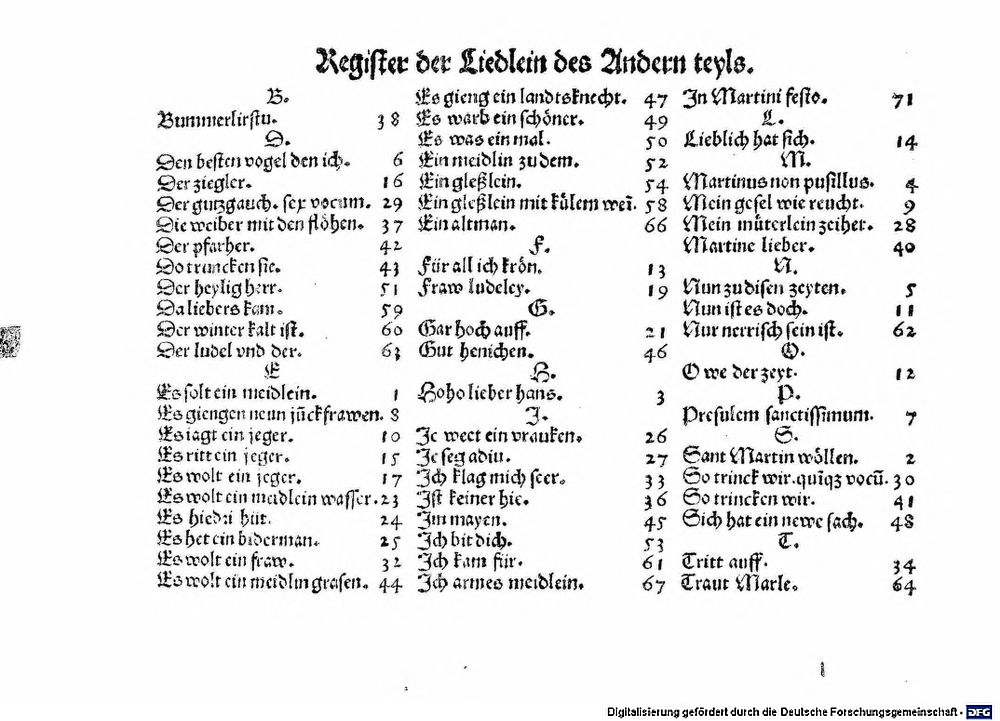 Register der Liedlein des Andern teyls.
B.
Bummerlirstu. 38
D.
Den besten vogel den ich. 6
Der ziegler. 16
Der gutzgauch. sex vocum. 29
Die weiber mit den flöhen. 37
Der pfarher. 42
Do truncken sie. 43
Der heylig herr. 51
Da liebers kam. 59
Der winter kalt ist. 60
Der ludel vnd der. 63
E
Es solt ein meidlein. 1
Es giengen neun jūckfrawen. 8
Es iagt ein jeger. 10
Es ritt ein jeger. 15
Es wolt ein jeger. 17
Es wolt ein meidlein wasser. 23
Es hiedri hüt. 24
Es het ein biderman. 25
Es wolt ein fraw. 32
Es wolt ein meidlin grasen. 44
Es gieng ein landtsknecht. 47
Es warb ein schöner. 49
Es was ein mal. 50
Ein meidlin zu dem. 52
Ein gleßlein. 54
Ein gleßlein mit külem wei. 58
Ein altman. 66
F.
Für all ich krön. 13
Fraw ludeley. 19
G.
Gar hoch auff. 21
Gut henichen. 46
H.
Hoho lieber hans. 3
J.
Je wect ein vrauken. 26
Je seg adiu. 27
Ich klag mich seer. 33
Ist keiner hie. 36
Im mayen. 45
Ich bit dich. 53
Ich kam für. 61
Ich armes meidlein. 67
In Martini festo. 71
L.
Lieblich hat sich. 14
M.
Martinus non pusillus. 4
Mein gesel wie reucht. 9
Mein müterlein zeiher. 28
Martine lieber. 40
N.
Nun zu disen zeyten. 5
Nun ist es doch. 11
Nur nerrisch sein ist. 62
O.
O we der zeyt. 12
P.
Presulem sanctissimum. 7
S.
Sant Martin wöllen. 2
So trinck wir. quīqz vocū. 30
So trincken wir. 41
Sich hat ein newe sach. 48
T.
Tritt auff. 34
Traut Marle. 64
Digitalisierung gefördert durch die Deutsche Forschungsgemeinschaft - DFG